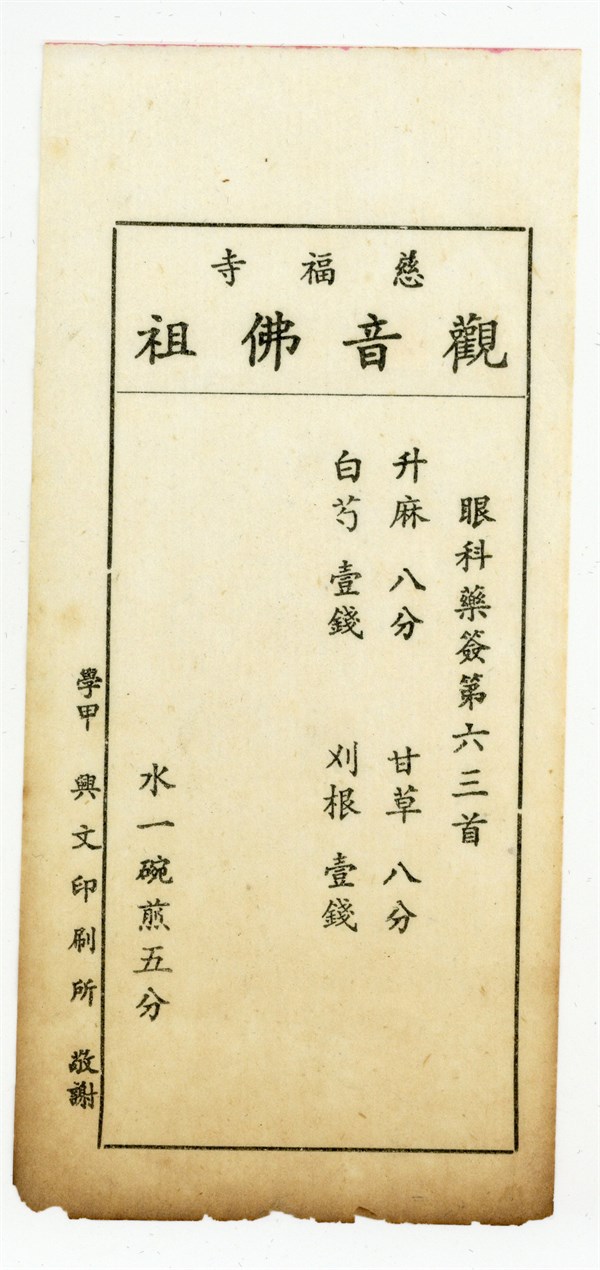 慈福寺
觀音佛祖
眼科藥簽第六三首
升麻 八分 甘草 八分
白芍 壹錢 刈根 壹錢
水一碗煎五分
學甲 興文印刷所 敬謝